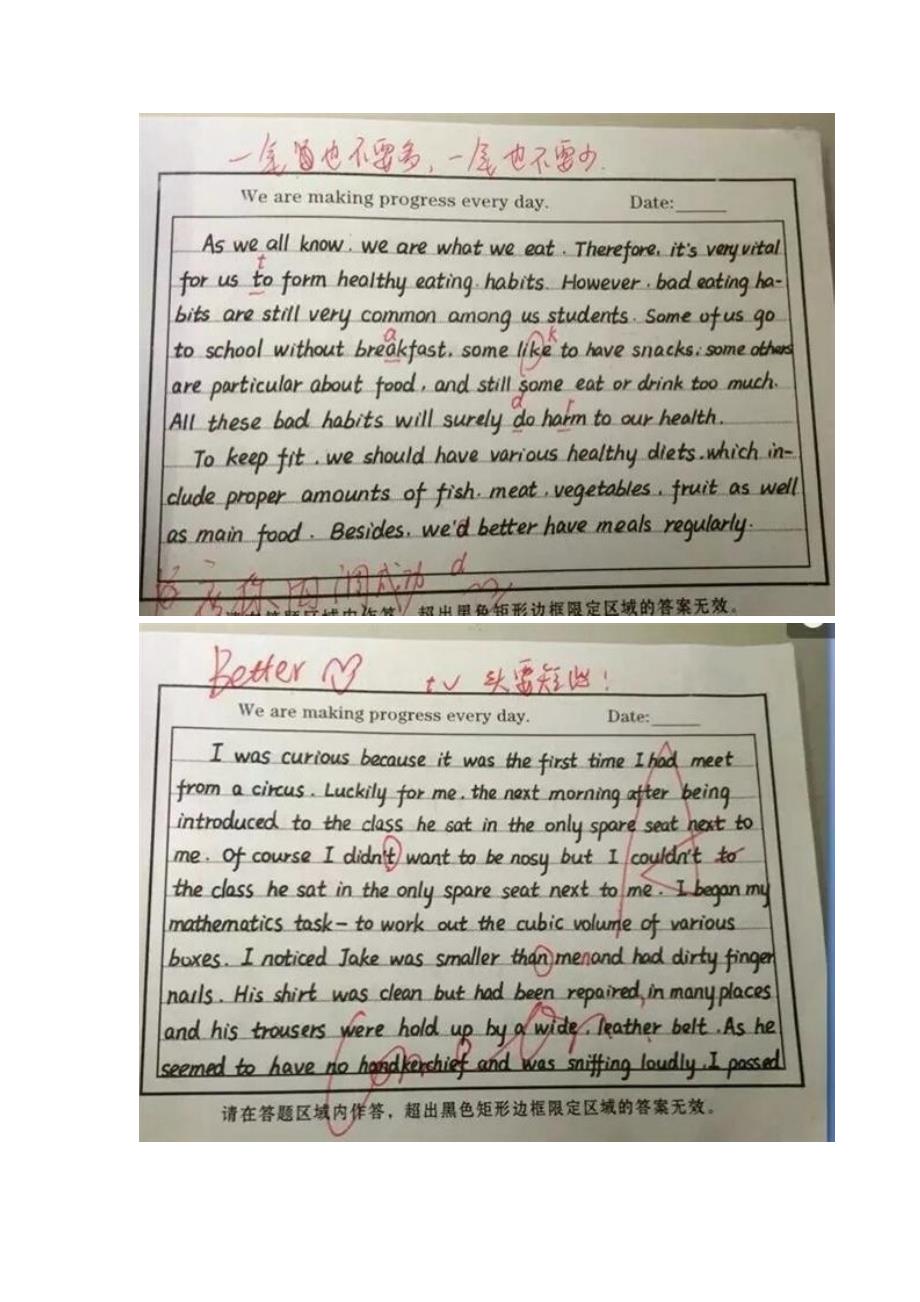 一尾也不要多，一尾也不要少.
We are making progress every day. Date:
As we all know, we are what we eat. Therefore, it's very vital
t
for us to form healthy eating habits. However, bad eating ha-
bits are still very common among us students. Some of us go
a k
to school without breakfast, some like to have snacks, some others
are particular about food, and still some eat or drink too much.
d r
All these bad habits will surely do harm to our health.
To keep fit, we should have various healthy diets, which in-
clude proper amounts of fish, meat, vegetables, fruit as well
as main food. Besides, we'd better have meals regularly.
d
超出黑色矩形边框限定区域的答案无效。
Better
t 头要短些!
We are making progress every day. Date:
I was curious because it was the first time I had meet
from a circus. Luckily for me, the next morning after being
introduced to the class he sat in the only spare seat next to
me. Of course I didn't want to be nosy but I couldn't to
the class he sat in the only spare seat next to me. I began my
mathematics task - to work out the cubic volume of various
boxes. I noticed Jake was smaller than men and had dirty finger
nails. His shirt was clean but had been repaired, in many places
and his trousers were hold up by a wide, leather belt. As he
seemed to have no handkerchief and was sniffing loudly, I passed
请在答题区域内作答，超出黑色矩形边框限定区域的答案无效。